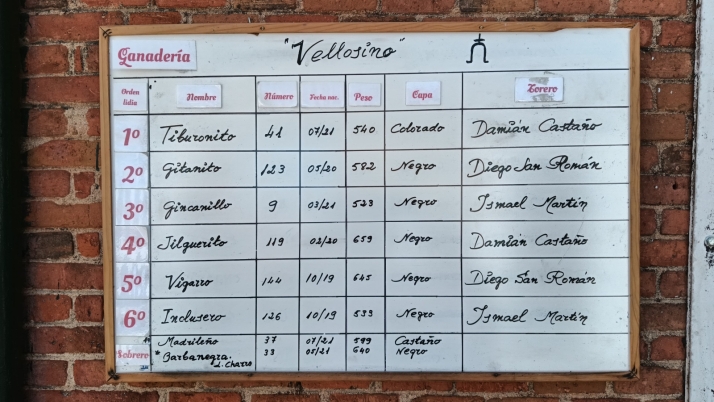 Ganadería "Vellosino"
Orden lidia Nombre Número Fecha nac. Peso Capa Torero
1º Tiburonito 41 07/21 540 Colorado Damián Castaño
2º Gitanito 123 05/20 582 Negro Diego San Román
3º Gincanillo 9 03/21 523 Negro Ismael Martín
4º Jilguerito 119 02/20 659 Negro Damián Castaño
5º Vigarro 144 10/19 645 Negro Diego San Román
6º Inclusero 126 10/19 533 Negro Ismael Martín
Madrileño 37 07/21 599 Castaño
Sobrero * Barbanegra. 33 05/21 640 Negro
L. Charro